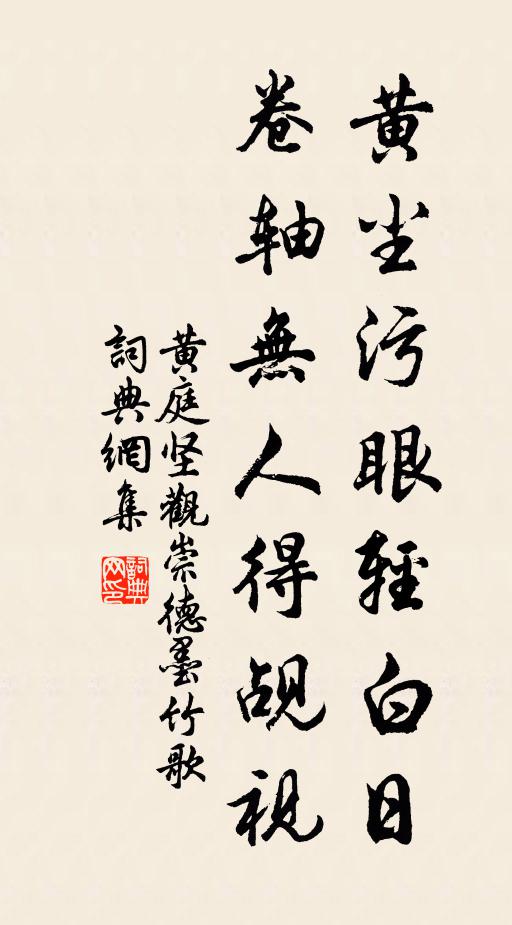 黄尘污眼輕白日
卷轴無人得觇視
黄庭坚觀崇德墨竹歌
詞典網集
詞典网印